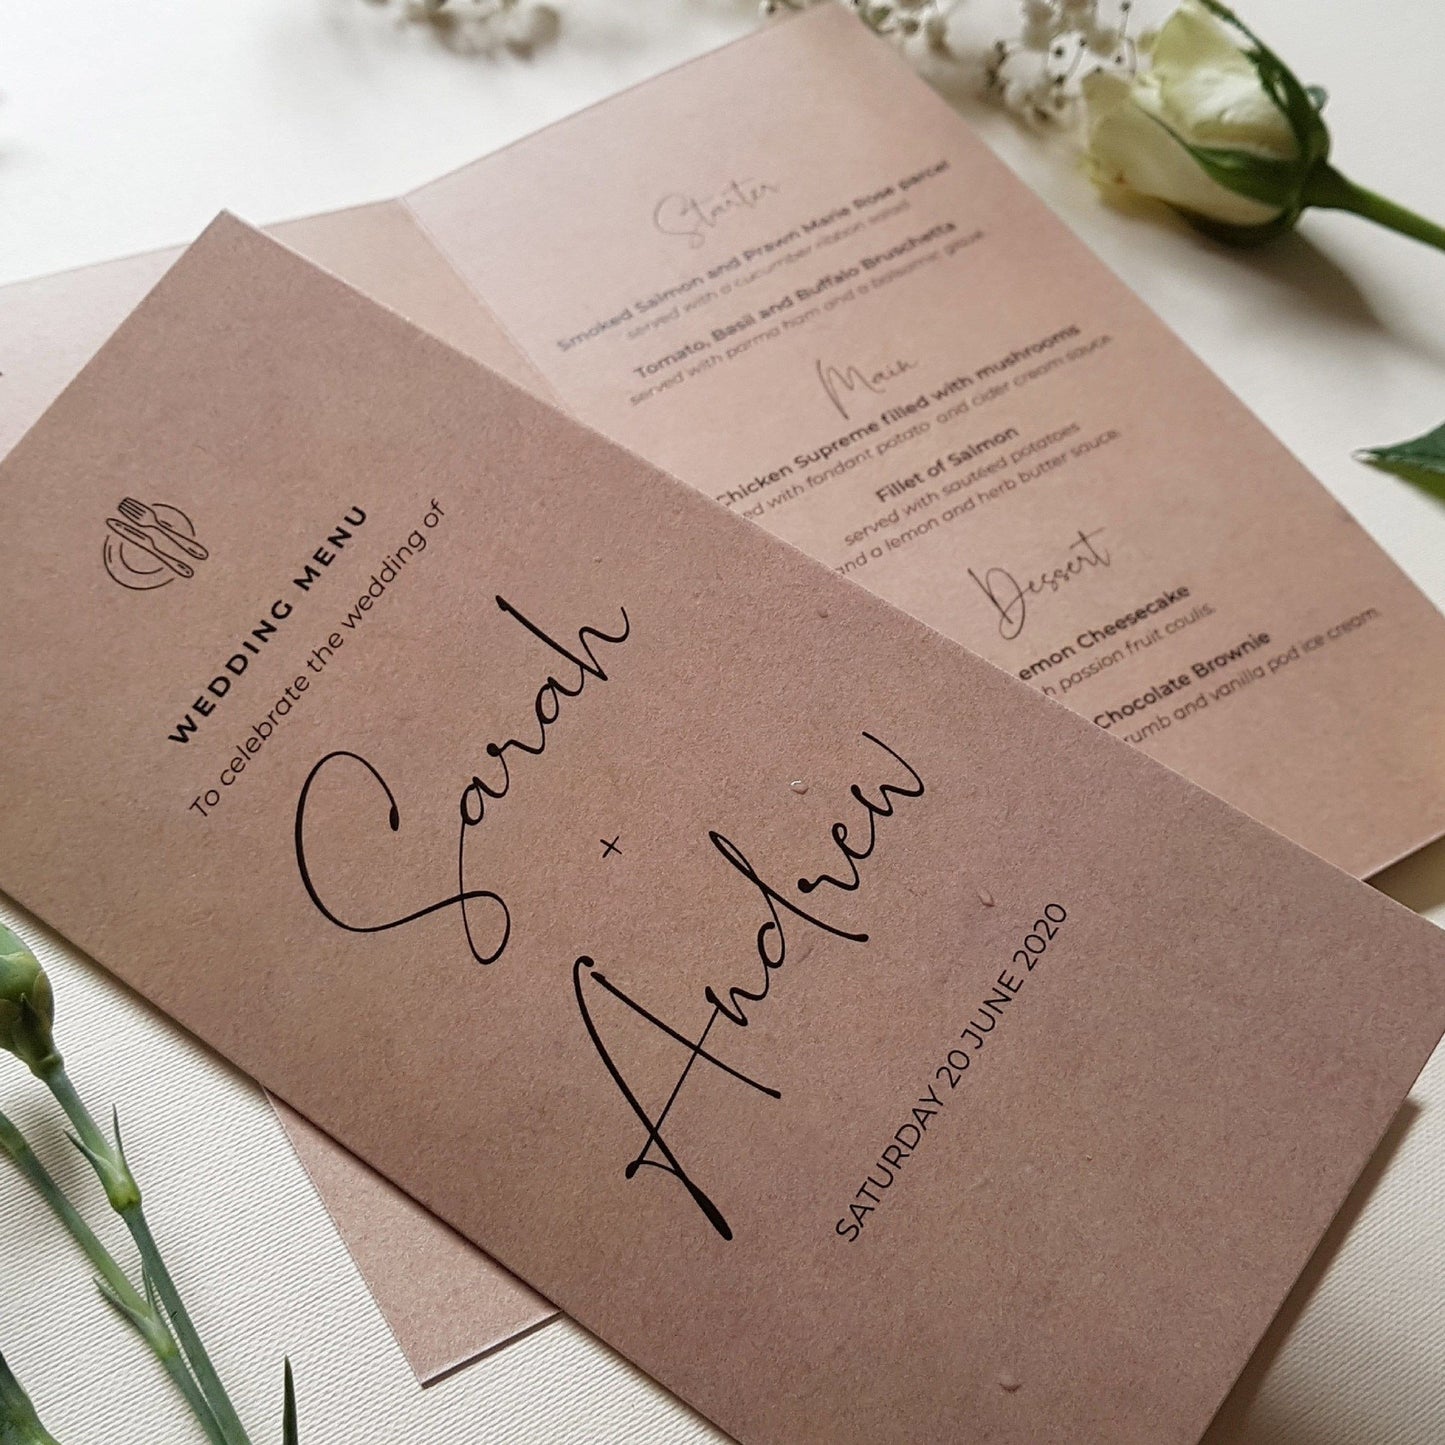 WEDDING MENU
To celebrate the wedding of
Sarah
+
Andrew
SATURDAY 20 JUNE 2020
Starter
Smoked Salmon and Prawn Marie Rose parcel
served with a cucumber ribbon salad
Tomato, Basil and Buffalo Bruschetta
served with parma ham and a balsamic glaze
Main
Chicken Supreme filled with mushrooms
ed with fondant potato and cider cream sauce
Fillet of Salmon
served with sautéed potatoes
and a lemon and herb butter sauce.
Dessert
emon Cheesecake
h passion fruit coulis.
Chocolate Brownie
rumb and vanilla pod ice cream.